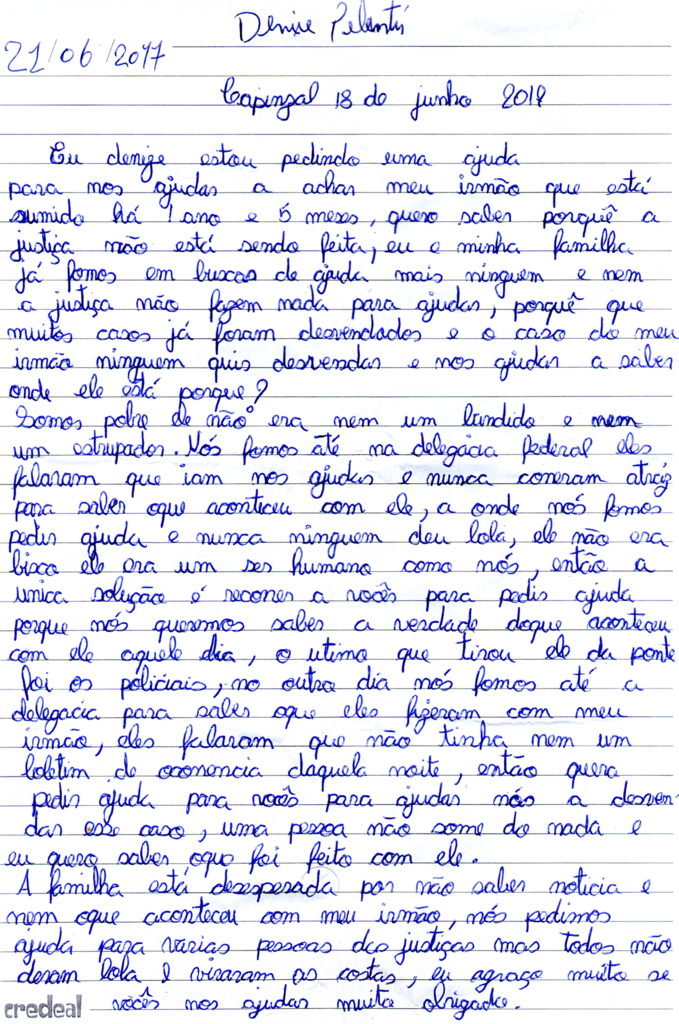 Denise Pelentir
21/06/2017
Capinzal 18 de junho 2017
Eu denize estou pedindo uma ajuda
para nos ajudar a achar meu irmão que está
sumido há 1 ano e 5 meses, quero saber porquê a
justiça não está sendo feita, eu e minha familha
já fomos em buscas de ajuda mais ninguem e nem
a justiça não fazem nada para ajudar, porquê que
muitos casos já foram desvendados e o caso do meu
irmão ninguem quis desvendar e nos ajudar a saber
onde ele está porque?
Somos pobre ele não era nem um bandido e nem
um estrupador. Nós fomos até na delegacia federal eles
falaram que iam nos ajudar e nunca correram atráz
para saber oque aconteceu com ele, a onde nós fomos
pedir ajuda e nunca ninguem deu bola, ele não era
bixo ele era um ser humano como nós, então a
unica solução é recorrer a vocês para pedir ajuda
porque nós queremos saber a verdade doque aconteceu
com ele aquele dia, o utimo que tirou ele da ponte
foi os policiais, no outro dia nós fomos até a
delegacia para saber oque eles fizeram com meu
irmão, eles falaram que não tinha nem um
boletim de ocorrencia daquela noite, então quera
pedir ajuda para vocês para ajudar nós a desven-
dar esse caso, uma pessoa não some do nada e
eu quero saber oque foi feito com ele.
A familha está desesperada por não saber noticia e
nem oque aconteceu com meu irmão, nós pedimos
ajuda para várias pessoas das justiças mas todos não
deram bola e viraram as costas, eu agraço muito se
vocês nos ajudar muito obrigado.
credeal